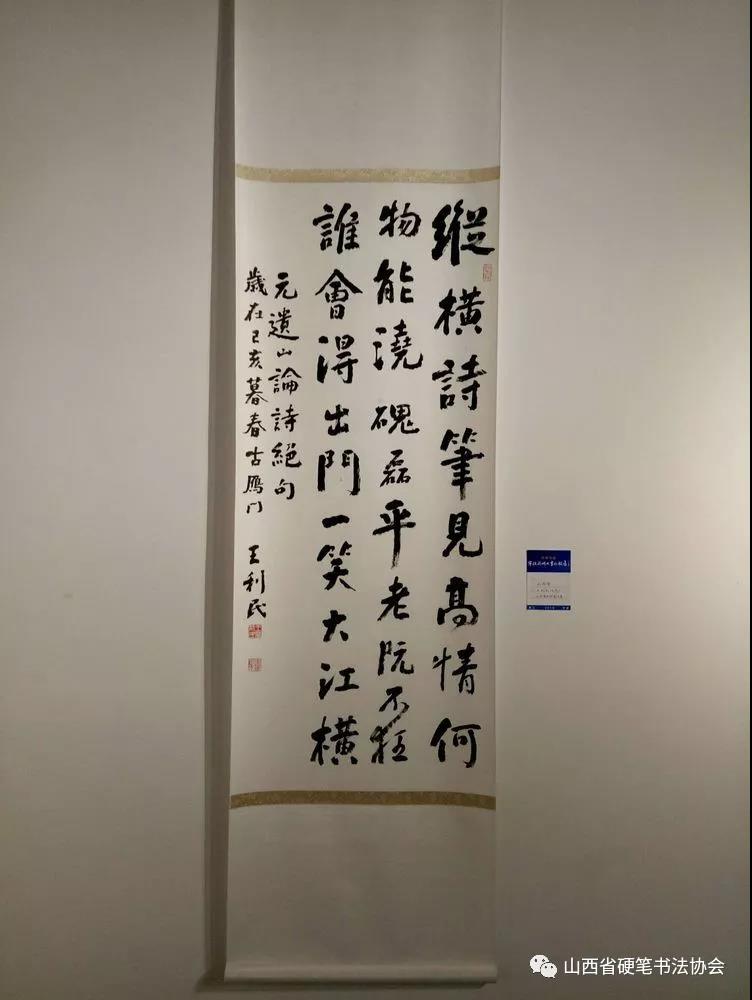 縱橫詩筆見高情何
物能澆磈磊平老阮不狂
誰會得出門一笑大江橫
元遺山論詩絕句
歲在己亥暮春古鴈门
王利民
山西省硬笔书法协会